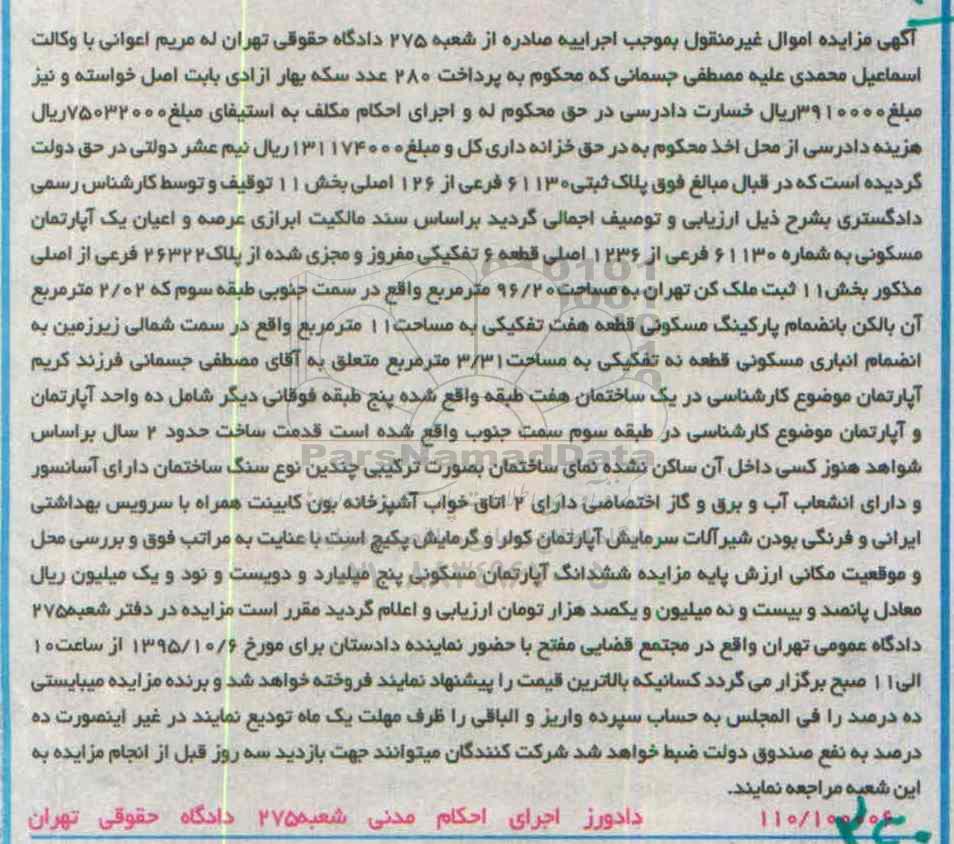 آگهی مزایده اموال غیرمنقول بموجب اجراییه صادره از شعبه ۲۷۵ دادگاه حقوقی تهران له مریم اعوانی با وکالت
اسماعیل محمدی علیه مصطفی جسمانی که محکوم به پرداخت ۲۸۰ عدد سکه بهار ازادی بابت اصل خواسته و نیز
مبلغ۳۹۱۰۰۰۰ریال خسارت دادرسی در حق محکوم له و اجرای احکام مکلف به استیفای مبلغ۷۵۰۳۲۰۰۰ریال
هزینه دادرسی از محل اخذ محکوم به در حق خزانه داری کل و مبلغ۱۳۱۱۷۴۰۰۰ریال نیم عشر دولتی در حق دولت
گردیده است که در قبال مبالغ فوق پلاک ثبتی۶۱۱۳۰ فرعی از ۱۲۶ اصلی بخش ۱۱ توقیف و توسط کارشناس رسمی
دادگستری بشرح ذیل ارزیابی و توصیف اجمالی گردید براساس سند مالکیت ابرازی عرصه و اعیان یک آپارتمان
مسکونی به شماره ۶۱۱۳۰ فرعی از ۱۲۳۶ اصلی قطعه ۶ تفکیکی مفروز و مجزی شده از پلاک۲۶۳۲۲ فرعی از اصلی
مذکور بخش۱۱ ثبت ملک کن تهران به مساحت۹۶/۲۰ مترمربع واقع در سمت جنوبی طبقه سوم که ۲/۰۲ مترمربع
آن بالکن بانضمام پارکینگ مسکونی قطعه هفت تفکیکی به مساحت۱۱ مترمربع واقع در سمت شمالی زیرزمین به
انضمام انباری مسکونی قطعه نه تفکیکی به مساحت۳/۳۱ مترمربع متعلق به آقای مصطفی جسمانی فرزند کریم
آپارتمان موضوع کارشناسی در یک ساختمان هفت طبقه واقع شده پنج طبقه فوقانی دیگر شامل ده واحد آپارتمان
و آپارتمان موضوع کارشناسی در طبقه سوم سمت جنوب واقع شده است قدمت ساخت حدود ۲ سال براساس
شواهد هنوز کسی داخل آن ساکن نشده نمای ساختمان بصورت ترکیبی چندین نوع سنگ ساختمان دارای آسانسور
و دارای انشعاب آب و برق و گاز اختصاصی دارای ۲ اتاق خواب آشپزخانه بون کابینت همراه با سرویس بهداشتی
ایرانی و فرنگی بودن شیرآلات سرمایش آپارتمان کولر و گرمایش پکیج است با عنایت به مراتب فوق و بررسی محل
و موقعیت مکانی ارزش پایه مزایده ششدانگ آپارتمان مسکونی پنج میلیارد و دویست و نود و یک میلیون ریال
معادل پانصد و بیست و نه میلیون و یکصد هزار تومان ارزیابی و اعلام گردید مقرر است مزایده در دفتر شعبه۲۷۵
دادگاه عمومی تهران واقع در مجتمع قضایی مفتح با حضور نماینده دادستان برای مورخ ۱۳۹۵/۱۰/۶ از ساعت۱۰
الی۱۱ صبح برگزار می گردد کسانیکه بالاترین قیمت را پیشنهاد نمایند فروخته خواهد شد و برنده مزایده میبایستی
ده درصد را فی المجلس به حساب سپرده واریز و الباقی را ظرف مهلت یک ماه تودیع نمایند در غیر اینصورت ده
درصد به نفع صندوق دولت ضبط خواهد شد شرکت کنندگان میتوانند جهت بازدید سه روز قبل از انجام مزایده به
این شعبه مراجعه نمایند.
۱۱۰/۱۰۰۰۰۶ دادورز اجرای احکام مدنی شعبه۲۷۵ دادگاه حقوقی تهران
ParsNamadData